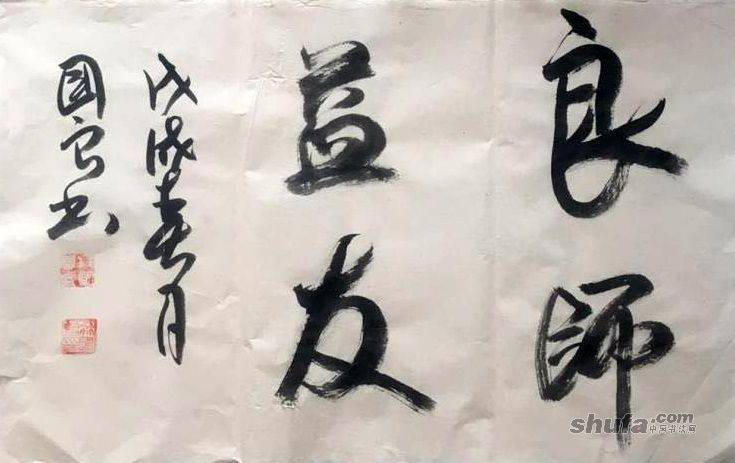 良师
益友
戊戌春月
国安书
shufa.com
中国书法网